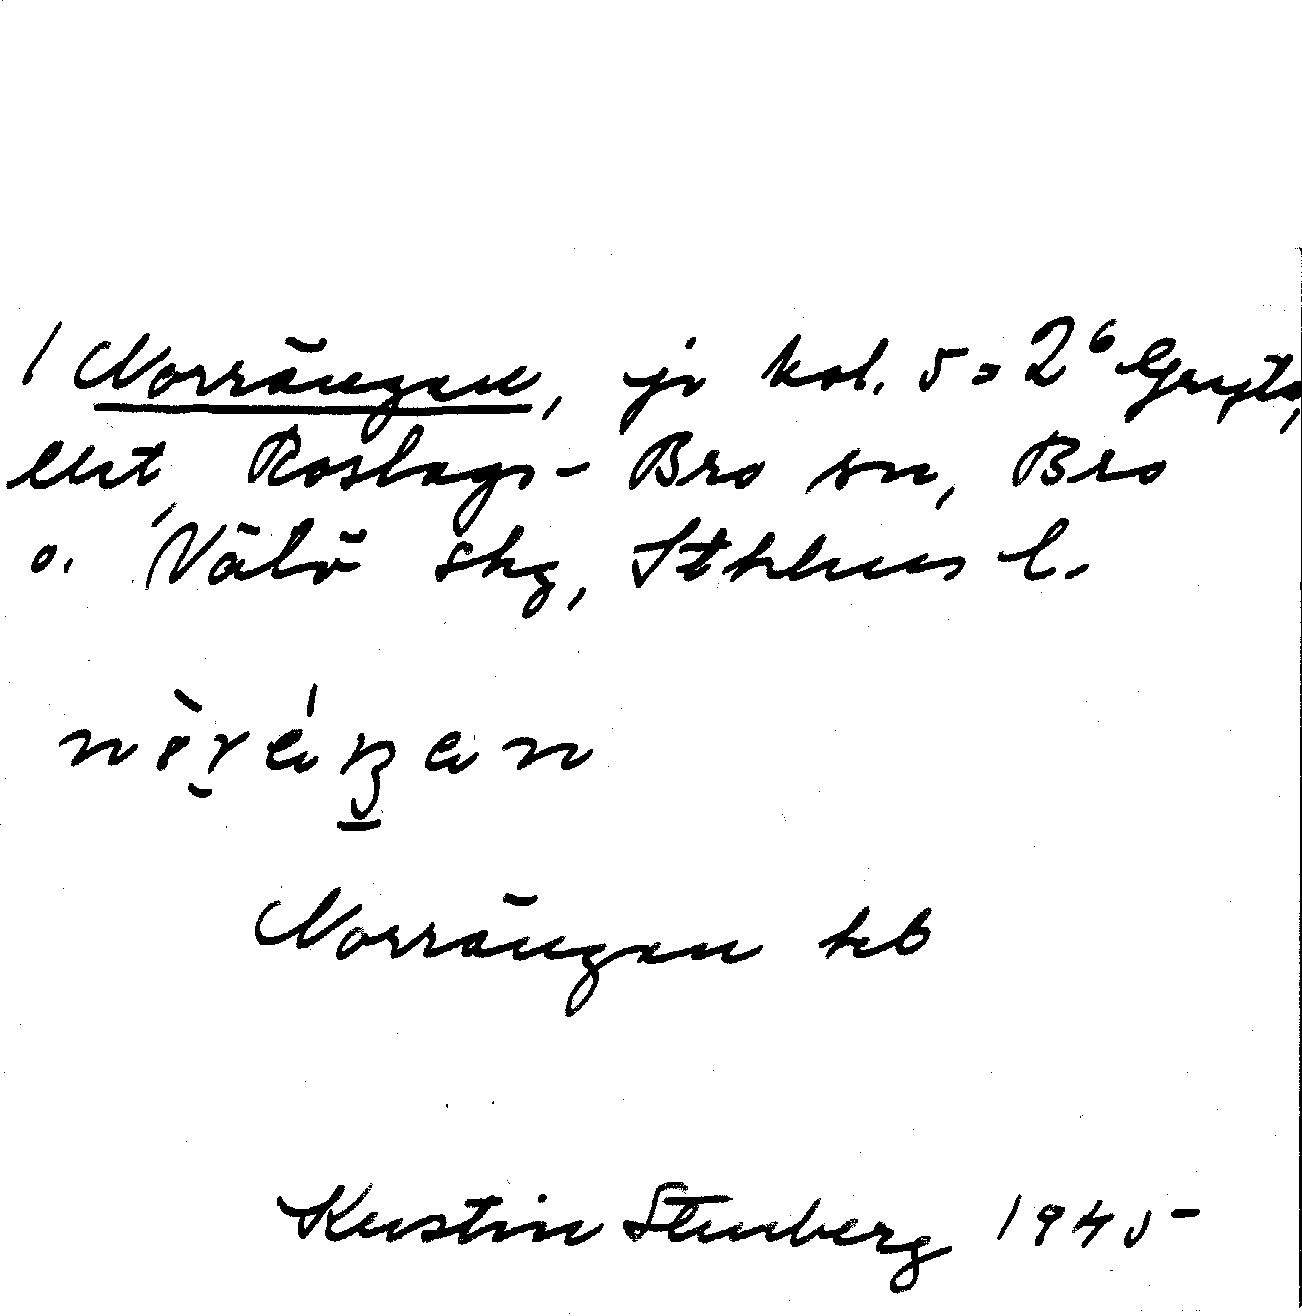 1 Norrängen, jo kol. 5 = 2⁶ Gryta,
Roslags-Bro sn, Bro
o. Vätö skg, Sthlms l.
Norrängen kb
Kerstin Stenberg 1945